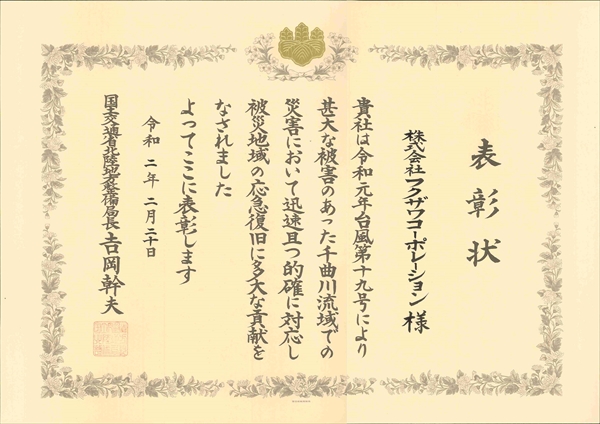 表彰状
株式会社フクザワコーポレーション 様
貴社は令和元年台風第十九号により
甚大な被害のあった千曲川流域での
災害において迅速且つ的確に対応し
被災地域の応急復旧に多大な貢献を
なされました
よってここに表彰します
令和 二年 二月二十日
国土交通省北陸地方整備局長 吉岡幹夫